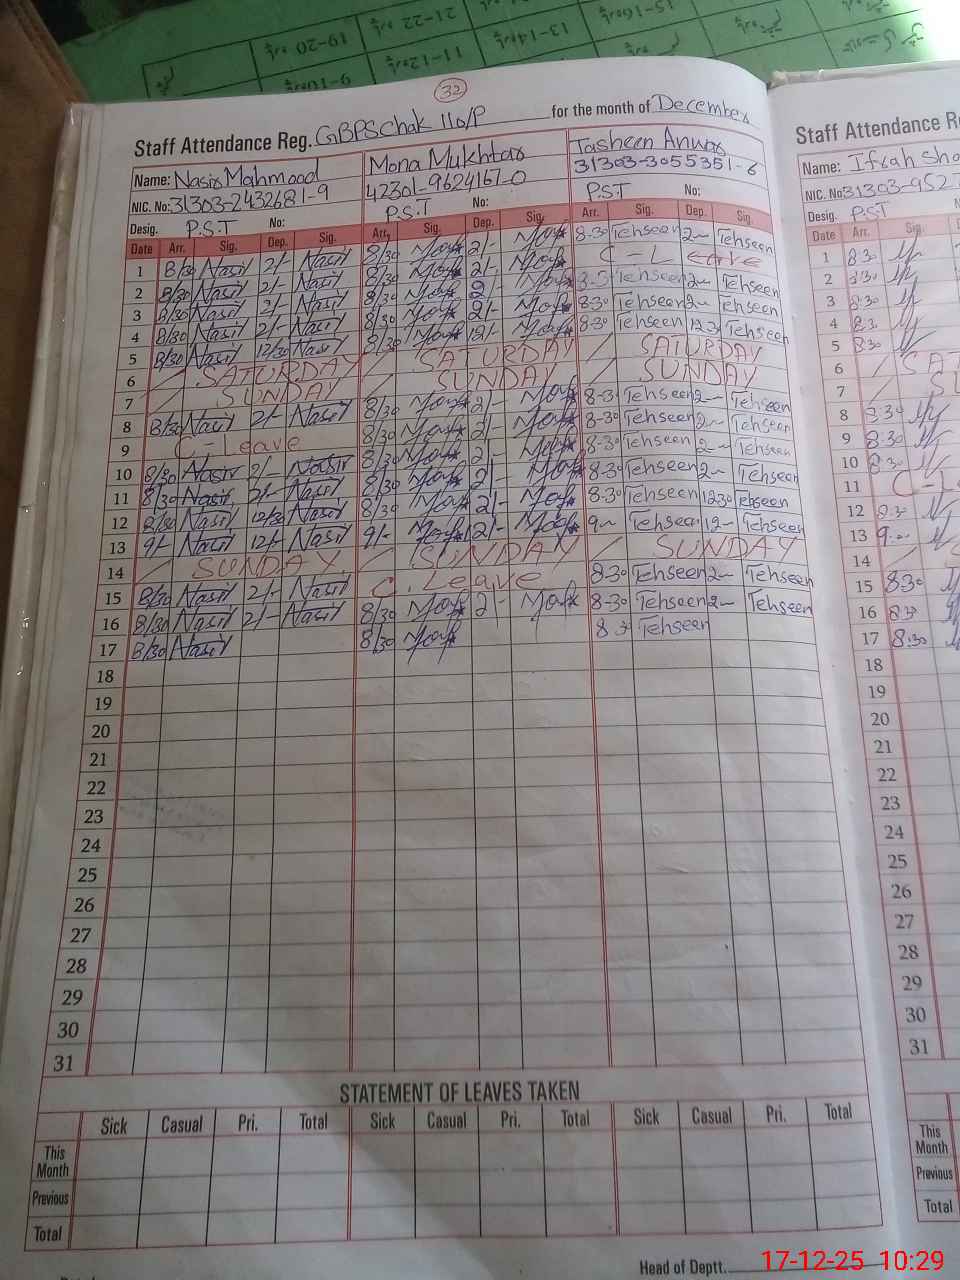 32
Staff Attendance Reg. GBPS Chak 110/P for the month of December
Name: Nasir Mahmood Mona Mukhtar Tasheen Anwar
NIC. No: 31303-2432681-9 42301-9624167-0 31303-3055351-6
Desig. P.S.T No: P.S.T No: P.S.T No:
Date Arr. Sig. Dep. Sig. Arr. Sig. Dep. Sig. Arr. Sig. Dep. Sig.
1 8/30 Nasir 2/- Nasir 8/30 2/- 8-30 Tehseen 2- Tehseen
2 8/30 Nasir 2/- Nasir 8/30 2/- C-Leave
3 8/30 Nasir 2/- Nasir 8/30 2/- Tehseen 2- Tehseen
4 8/30 Nasir 2/- Nasir 8/30 2/- 8-30 Tehseen 2- Tehseen
5 8/30 Nasir 12/30 Nasir 8/30 12/- 8-30 Tehseen Tehseen
6 SATURDAY SATURDAY SATURDAY
7 SUNDAY SUNDAY SUNDAY
8 8/30 Nasir 2/- Nasir 8/30 2/- 8-30 Tehseen 2- Tehseen
9 C-Leave 8/30 2/- 8-30 Tehseen 2- Tehseen
10 8/30 Nasir 2/- Nasir 8/30 2/- 8-30 Tehseen 2- Tehseen
11 8/30 Nasir 2/- Nasir 8/30 2/- 8-30 Tehseen 2- Tehseen
12 8/30 Nasir 12/30 Nasir 8/30 2/- 8-30 Tehseen 1230 Tehseen
13 9/- Nasir 12/- Nasir 9/- 12/- 9- Tehseen 12- Tehseen
14 SUNDAY SUNDAY SUNDAY
15 8/30 Nasir 2/- Nasir C. Leave 8-30 Tehseen 2- Tehseen
16 8/30 Nasir 2/- Nasir 8/30 2/- 8-30 Tehseen 2- Tehseen
17 8/30 Nasir 8/30 Tehseen
18
19
20
21
22
23
24
25
26
27
28
29
30
31
STATEMENT OF LEAVES TAKEN
Sick Casual Pri. Total Sick Casual Pri. Total Sick Casual Pri. Total
This Month
Previous
Total
Head of Deptt.
Staff Attendance
Name: Ifrah
NIC. No: 31303-
Desig. PST
Date Arr. Sig.
1 8:30
2 8:30
3 8:30
4 8:30
5 8:30
6
7
8 8:30
9 8:30
10 8:30
11 C-L
12 8:30
13 9:00
14
15 8:30
16 8:30
17 8:30
18
19
20
21
22
23
24
25
26
27
28
29
30
31
This Month
Previous
Total
9-10
11-12
13-14
15-16
19-20
21-22
17-12-25 10:29